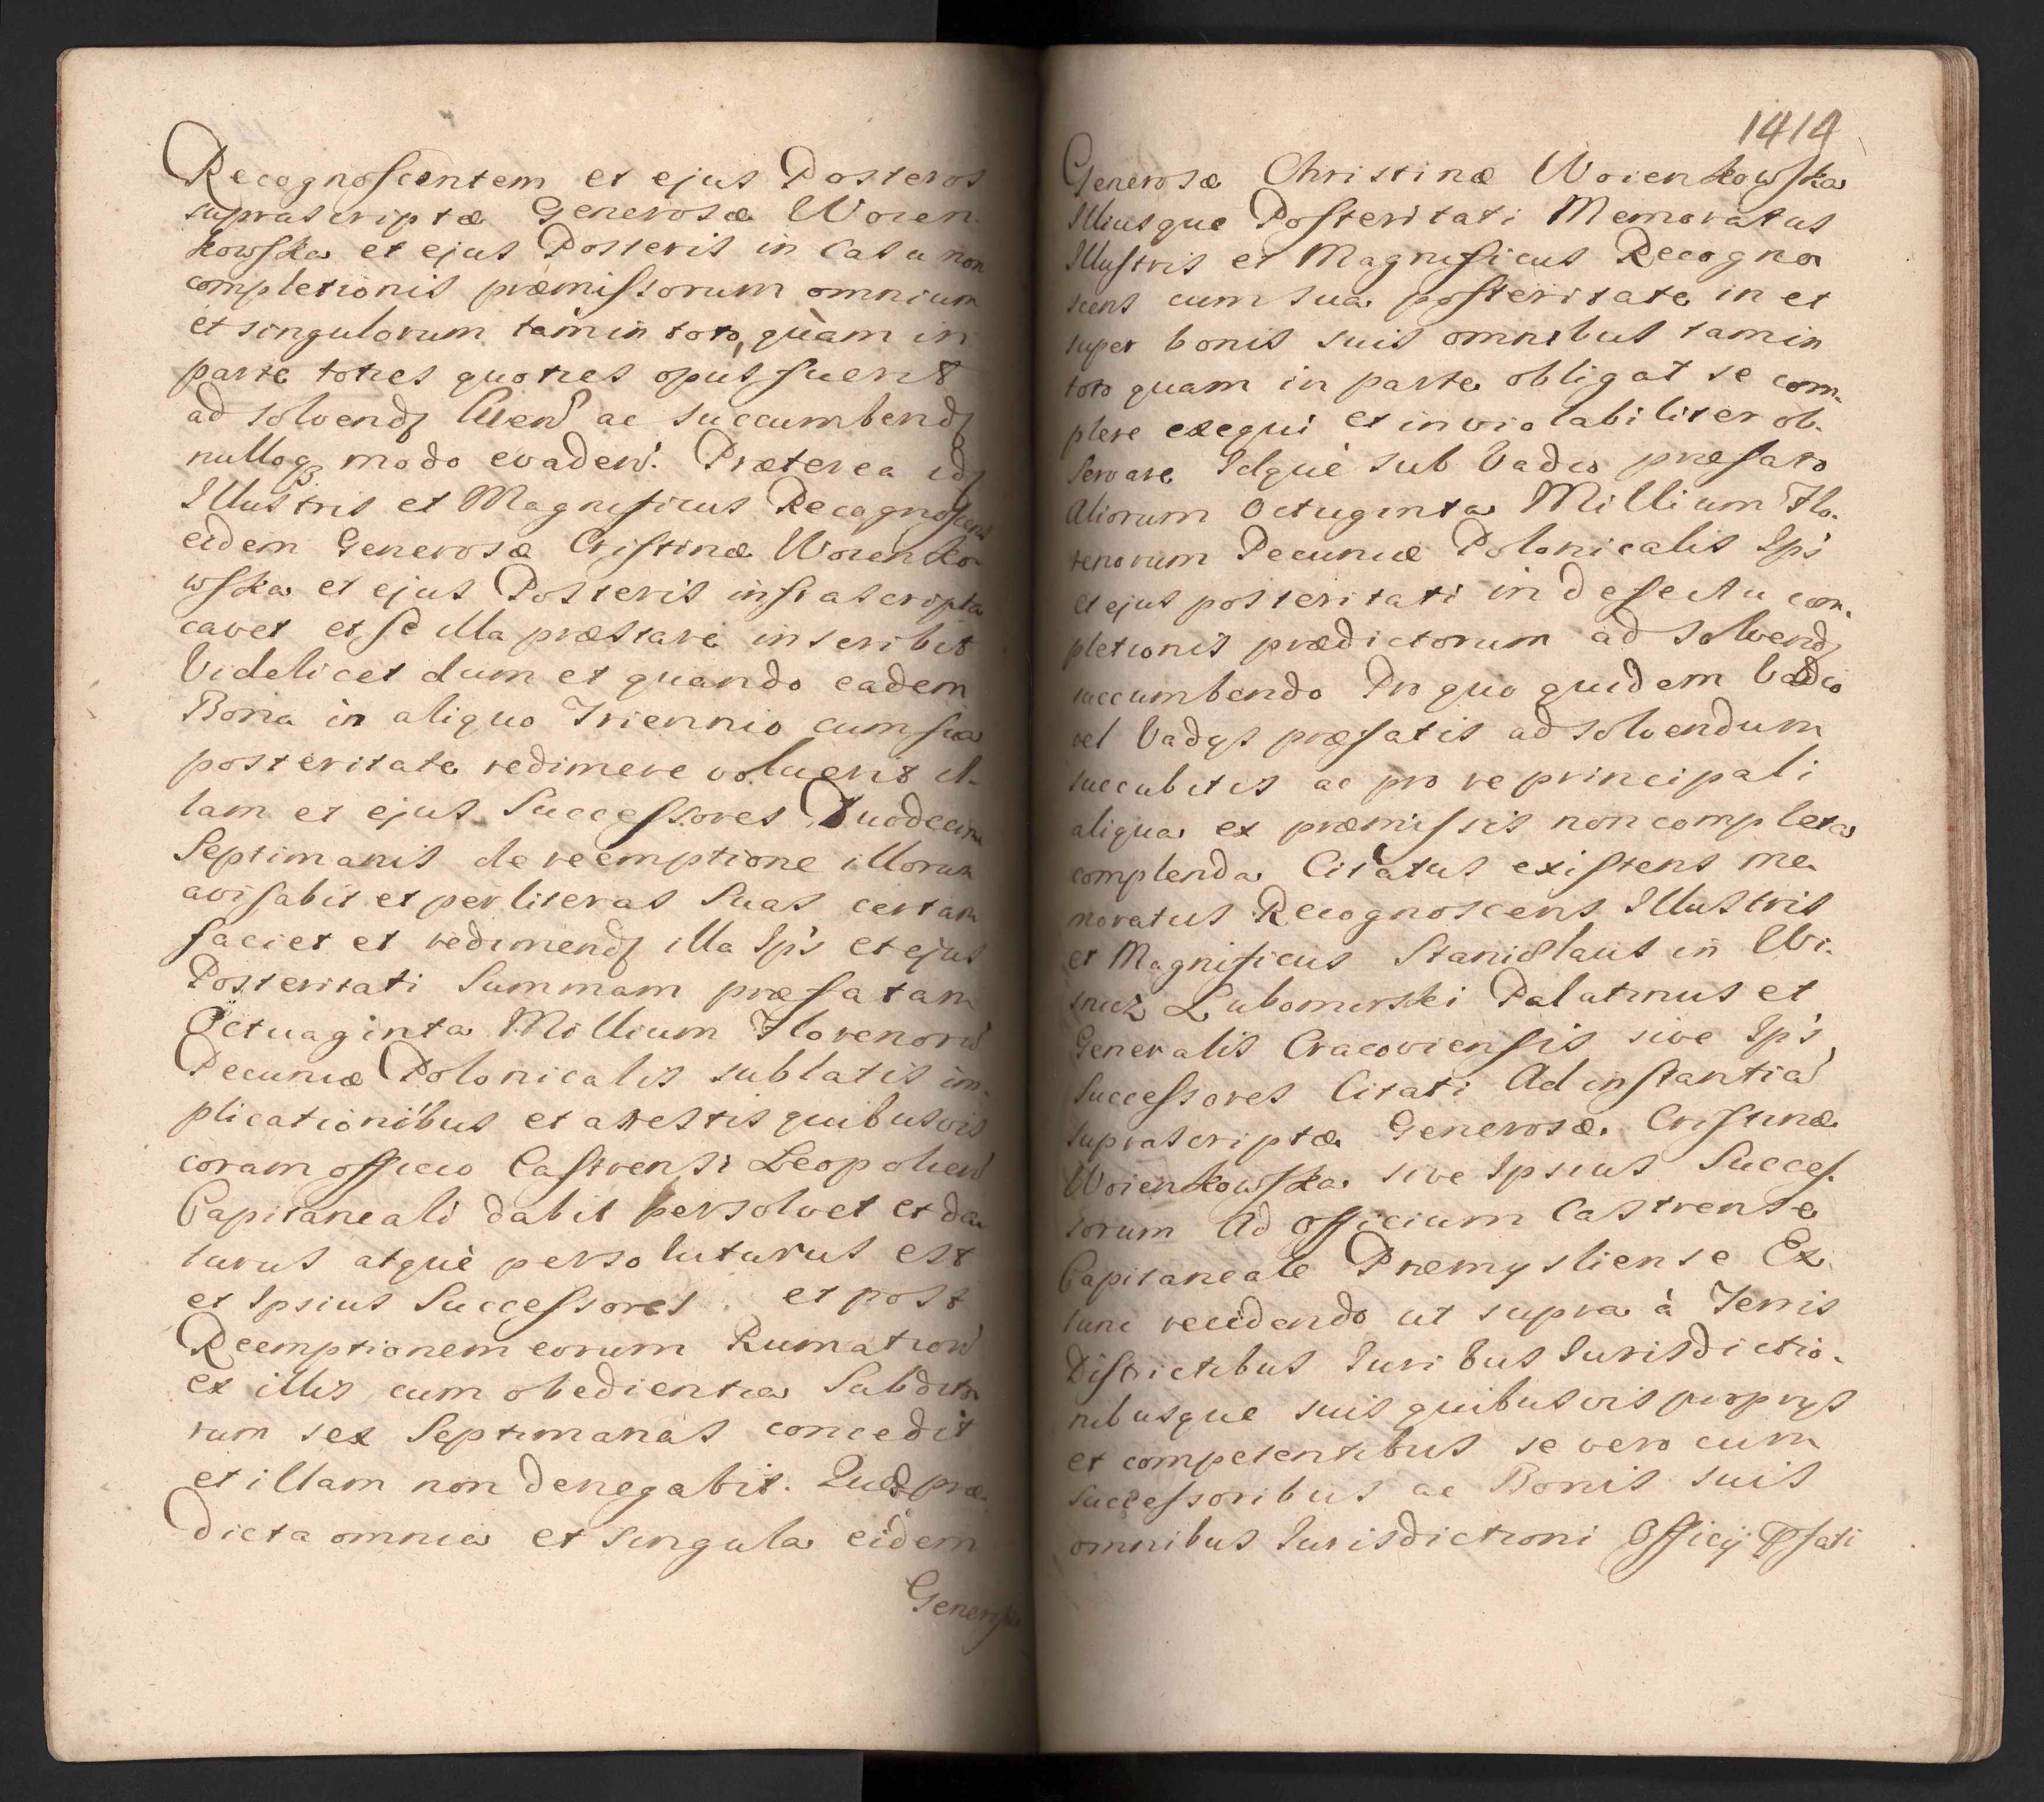 Recognoscentem et ejus Posteros
suprascriptæ Generosæ Woien-
kowska et ejus Posteris in Casu non
completionis præmissorum omnium
et singulorum tam in toto, quàm in
parte toties quoties opus fuerit
ad solvend luen ac succumbend
nulloq modo evaden. Præterea id
Illustris et Magnificus Recognoscens
eidem Generosæ Cristinæ Woienko
wska et ejus Posteris infrascripta
cavet et se illa præstare inscribit
Videlicet dum et quando eadem
Bona in aliquo Triennio cum sua
posteritate redimere voluerit il-
lam et ejus Successores Duodecim
Septimanis de reemptione illorum
avisabit et per literas Suas certam
faciet et redimend illa Ips et ejus
Posteritati Summam præfatam
Octuaginta Millium Florenorū
Pecuniæ Polonicalis sublatis im-
plicationibus et arrestis quibusvis
coram officio Castrensi Leopolien
Capitaneali dabit persolvet et da
turus atquè persoluturus est
et Ipsius Successores et post
Reemptionem eorum Rumation
ex illis cum obedientia Subdito
rum sex Septimanas concedit
et illam non denegabit. Quæ præ-
dicta omnia et singula eidem
Generosæ
1414
Generosæ Christinæ Woienkowska
Illiusque Posteritati Memoratus
Illustris et Magnificus Recogno
scens cum sua posteritate in et
super bonis suis omnibus tam in
toto quam in parte obligat se com-
plere exequi et inviolabiliter ob-
servare Idquè sub Vadio præfato
Aliorum Octuginta Millium Flo-
renorum Pecuniæ Polonicalis Ips
et ejus posteritati in defectu com-
pletionis prædictorum ad solvend
succumbendo Pro quo quidem Vadio
vel Vadys præfatis ad solvendum
succubitis ac pro re principali
aliqua ex præmissis non completa
complenda Citatus existens me
moratus Recognoscens Illustris
et Magnificus Stanislaus in Wi-
snicz Lubomirski Palatinus et
Generalis Cracoviensis sive Ips
Successores Citati Ad instantiā
suprascriptæ Generosæ Cristinæ
Woienkowska sive Ipsius Succes-
sorum Ad officium Castrense
Capitaneale Præmysliense Ex
tunc recedendo ut supra à Terris
Districtibus Iuribus Iurisdictio-
nibusque suis quibusvis proprys
et competentibus se vero cum
successoribus ac Bonis suis
omnibus Iurisdictioni Officij Pfati